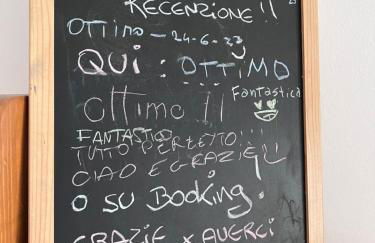 RECENZIONE !!
Ottimo - 24-6-23
QUI : OTTIMO
Ottimo !!
Fantastica
FANTASTICO
TUTTO PERFETTO!!!
CIAO E GRAZIE!!
O SU BOOKING.
GRAZIE X AVERCI